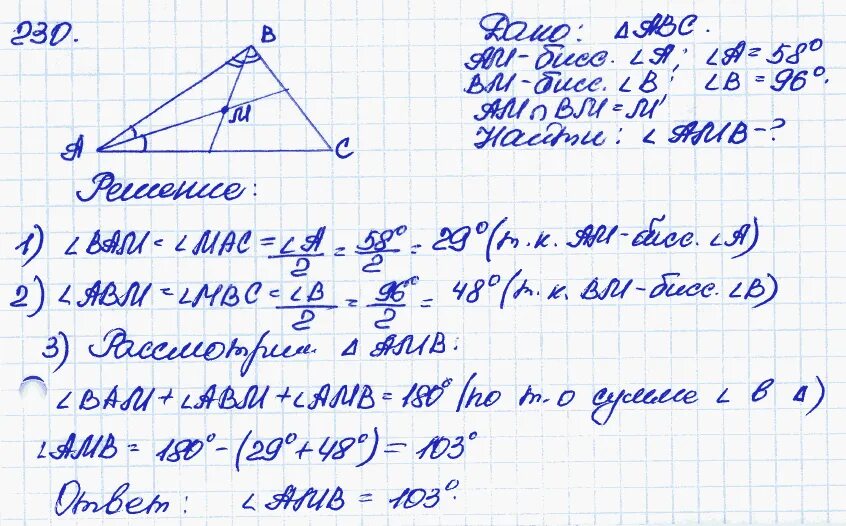 230.
B
A
M
C
Дано: △ABC.
AM-бисс. ∠A; ∠A=58°
BM-бисс. ∠B; ∠B=96°.
AM∩BM=M
Найти: ∠AMB-?
Решение:
1) ∠BAM=∠MAC=∠A/2=58°/2=29° (т.к. AM-бисс. ∠A)
2) ∠ABM=∠MBC=∠B/2=96°/2=48° (т.к. BM-бисс. ∠B)
3) Рассмотрим △AMB:
∠BAM+∠ABM+∠AMB=180° (по т. о сумме ∠ в △)
∠AMB=180°-(29°+48°)=103°
Ответ: ∠AMB=103°.